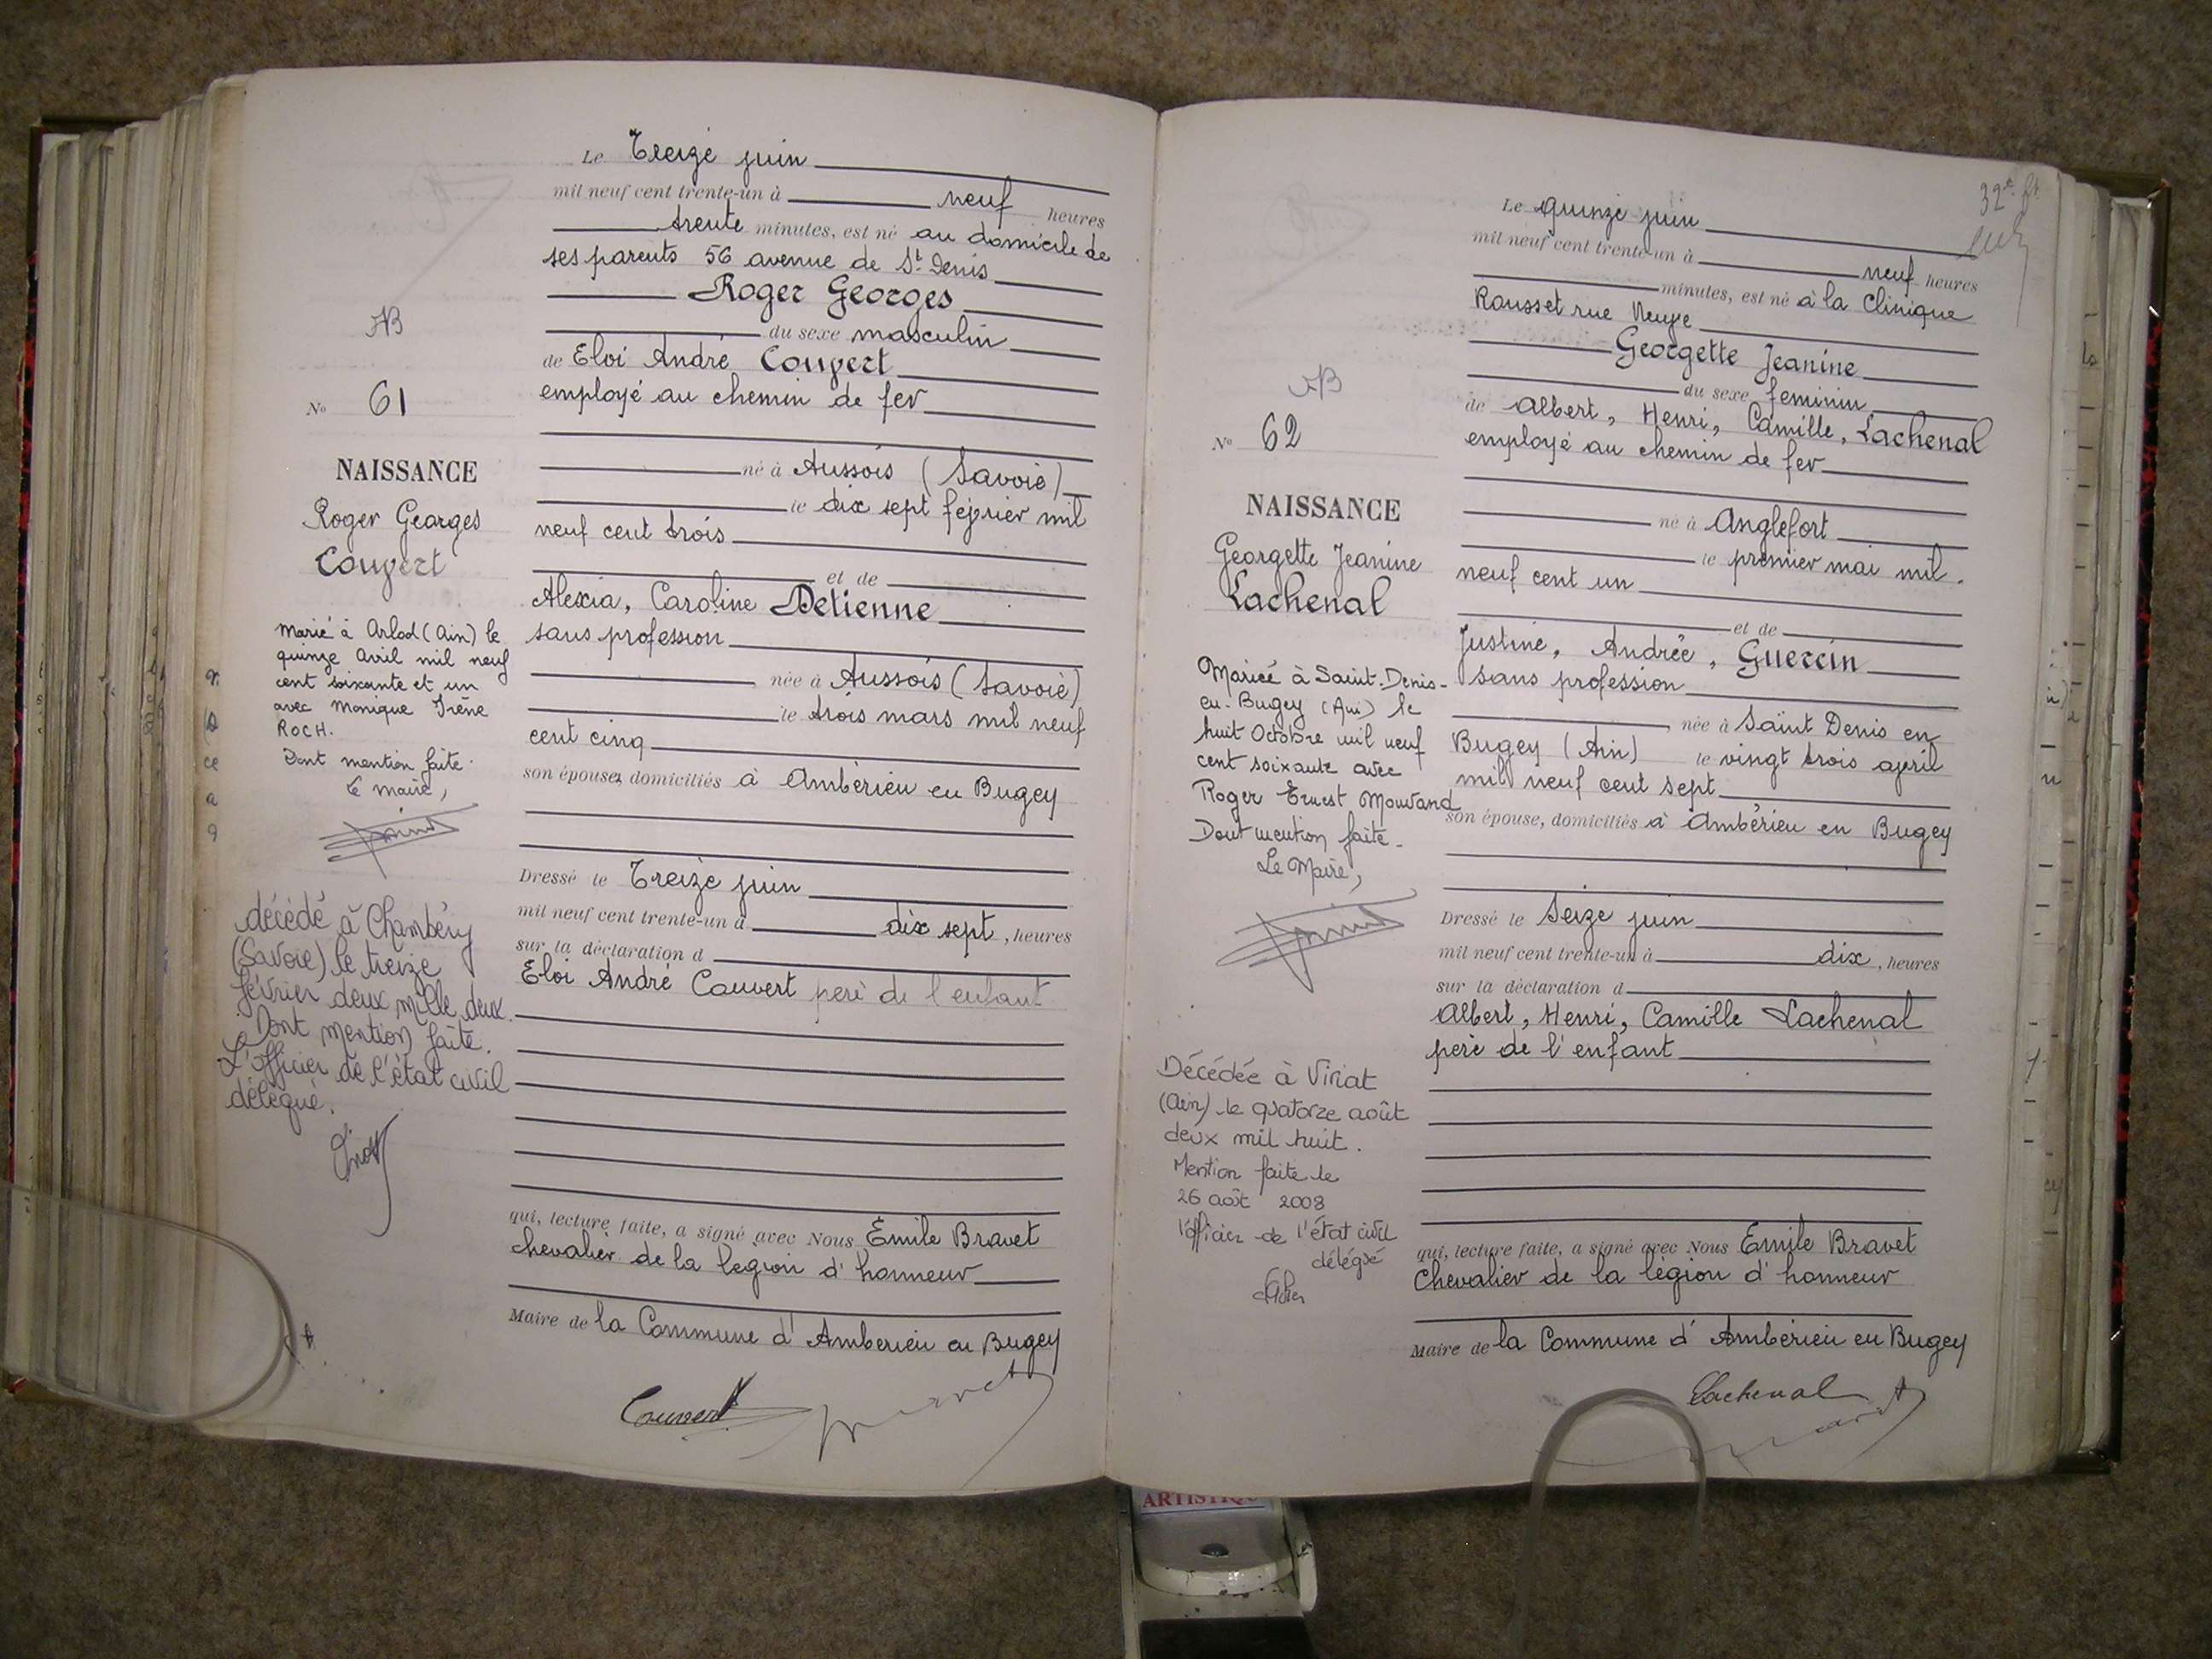 Le Treize juin
mil neuf cent trente-un à neuf heures
trente minutes, est né au domicile de
ses parents 56 avenue de St Denis
Roger Georges
du sexe masculin
de Eloi André Couvert
employé au chemin de fer
né à Aussois (Savoie)
le dix sept février mil
neuf cent trois
et de
Alexia, Caroline Detienne
sans profession
née à Aussois (Savoie)
le trois mars mil neuf
cent cinq
son épouse, domiciliés à Ambérieu en Bugey
Dressé le Treize juin
mil neuf cent trente-un à dix sept, heures
sur la déclaration d
Eloi André Couvert père de l'enfant
qui, lecture faite, a signé avec Nous Emile Bravet
chevalier de la legion d'honneur
Maire de la Commune d'Amberieu en Bugey
Couvert
AB
No 61
NAISSANCE
Roger Georges
Couvert
Marié à Arlod (Ain) le
quinze Avril mil neuf
cent soixante et un
avec Monique Irène
ROCH.
Dont mention faite.
Le maire,
décédé à Chambéry
(Savoie) le treize
février deux mille deux.
Dont mention faite.
L'officier de l'état civil
délégué.
32e ft
Le quinze juin
mil neuf cent trente-un à neuf heures
minutes, est né à la Clinique
Rousset rue Neuve
Georgette Jeanine
du sexe feminin
de Albert, Henri, Camille, Lachenal
employé au chemin de fer
né à Anglefort
le premier mai mil
neuf cent un
et de
Justine, Andrée, Guercin
sans profession
née à Saint Denis en
Bugey (Ain) le vingt trois avril
mil neuf cent sept
son épouse, domiciliés à Ambérieu en Bugey
Dressé le Seize juin
mil neuf cent trente-un à dix, heures
sur la déclaration d
Albert, Henri, Camille Lachenal
père de l'enfant
qui, lecture faite, a signé avec Nous Emile Bravet
Chevalier de la légion d'honneur
Maire de la Commune d'Ambérieu en Bugey
Lachenal
AB
No 62
NAISSANCE
Georgette Jeanine
Lachenal
Mariée à Saint-Denis-
en-Bugey (Ain) le
huit Octobre mil neuf
cent soixante avec
Roger Ernest Mouvand
Dont mention faite.
Le Maire,
Décédée à Viriat
(Ain) le quatorze août
deux mil huit.
Mention faite le
26 août 2008
l'officier de l'état civil
délégué
ARTISTIQU